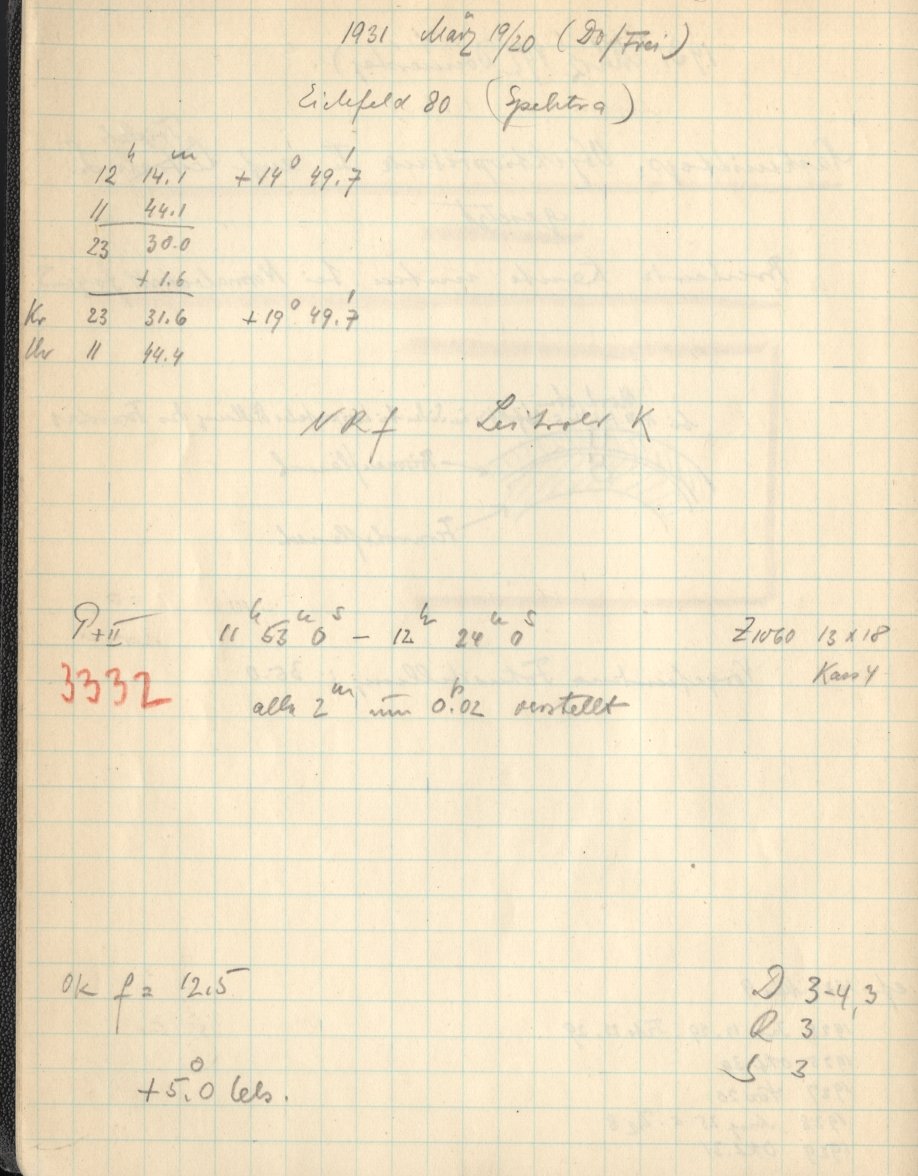 1931 März 19/20 (Do/Frei)
Eichfeld 80 (Spektra)
12ʰ 14.1ᵐ +14° 49.7'
11 44.1
23 30.0
+1.6
Kr 23 31.6 +19° 49.7'
Uhr 11 44.4
NRf Leitrohr K
P+II 11ʰ 53ᵐ 0ˢ – 12ʰ 24ᵐ 0ˢ Z1060 13x18
3332 Kass 4
alle 2ᵐ um 0.02 verstellt
Ok f = 12.5 D 3-4, 3
R 3
S 3
+5.0° Cels.